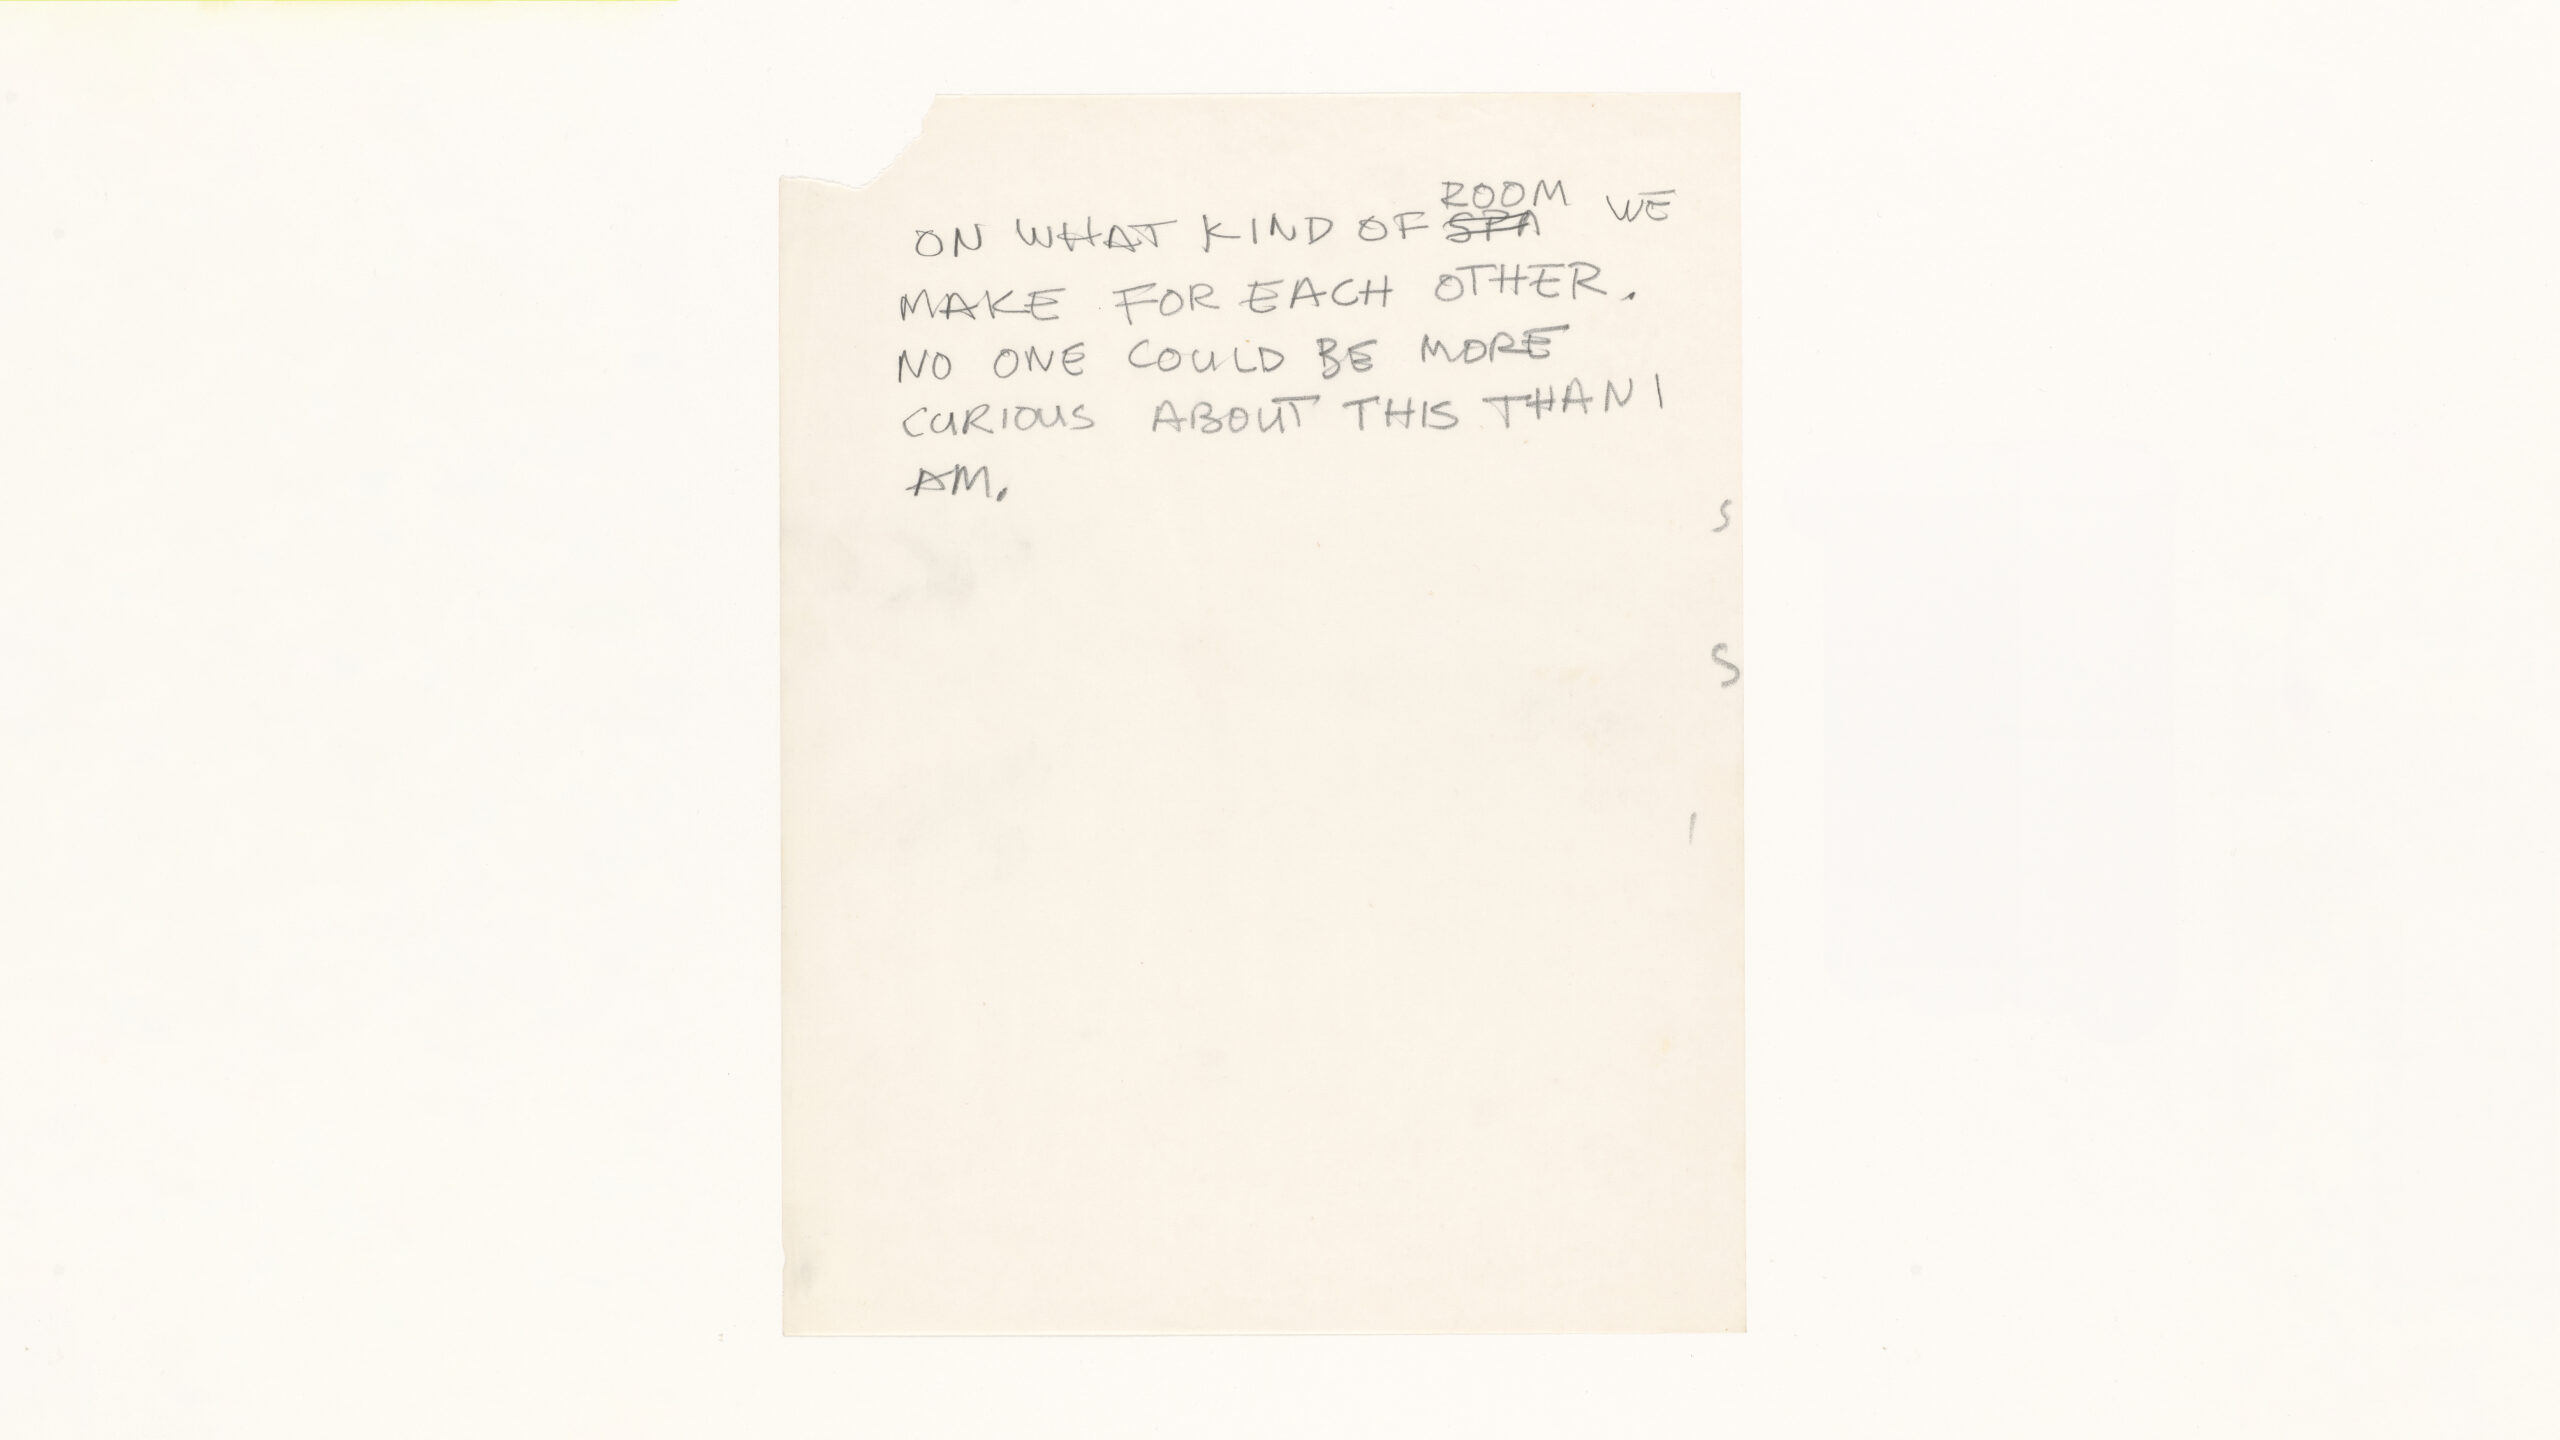 ON WHAT KIND OF ~~SPA~~ ROOM WE
MAKE FOR EACH OTHER.
NO ONE COULD BE MORE
CURIOUS ABOUT THIS THAN I
AM.
S
S